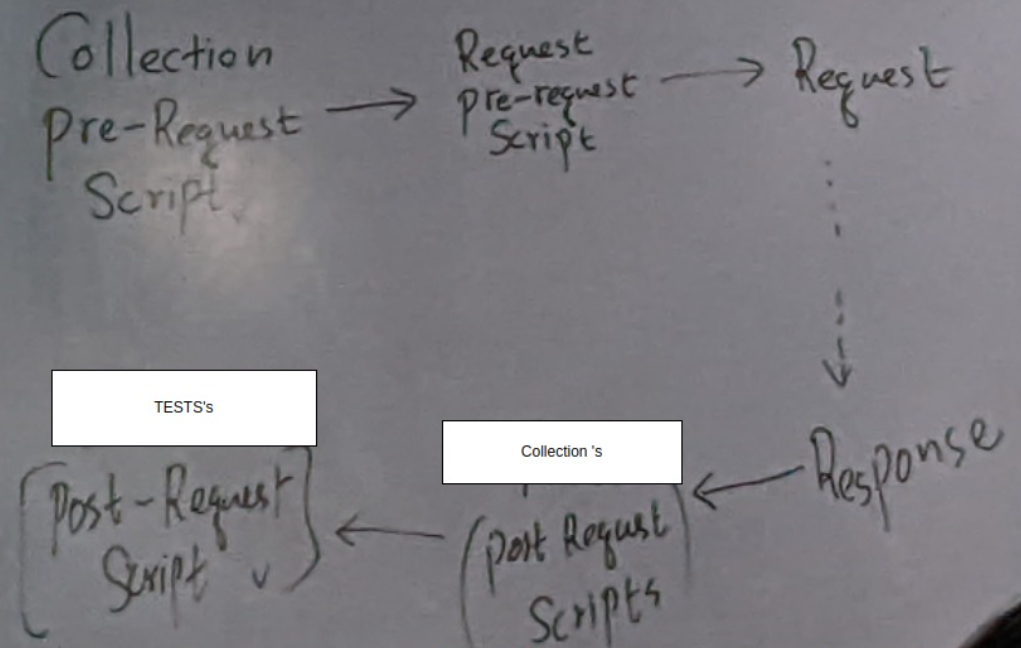 Collection
Pre-Request
Script
Request
Pre-request
Script
Request
Response
Collection 's
(Post Request
Scripts
TESTS's
Post-Request
Script